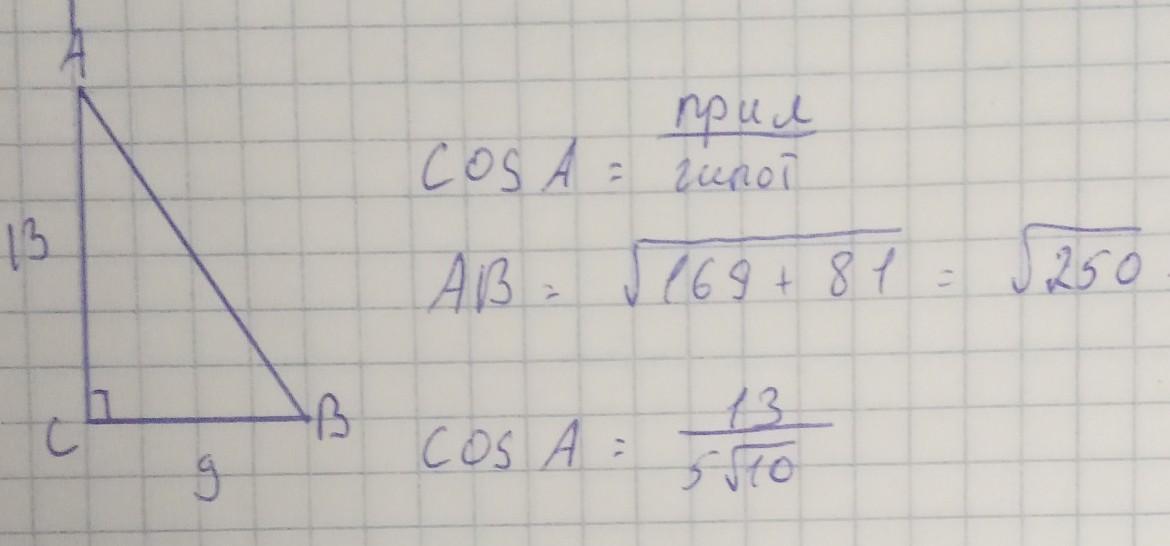 A
13
C
9
B
cos A = прил / гипот
AB = √169 + 81 = √250
cos A = 13 / 5√10